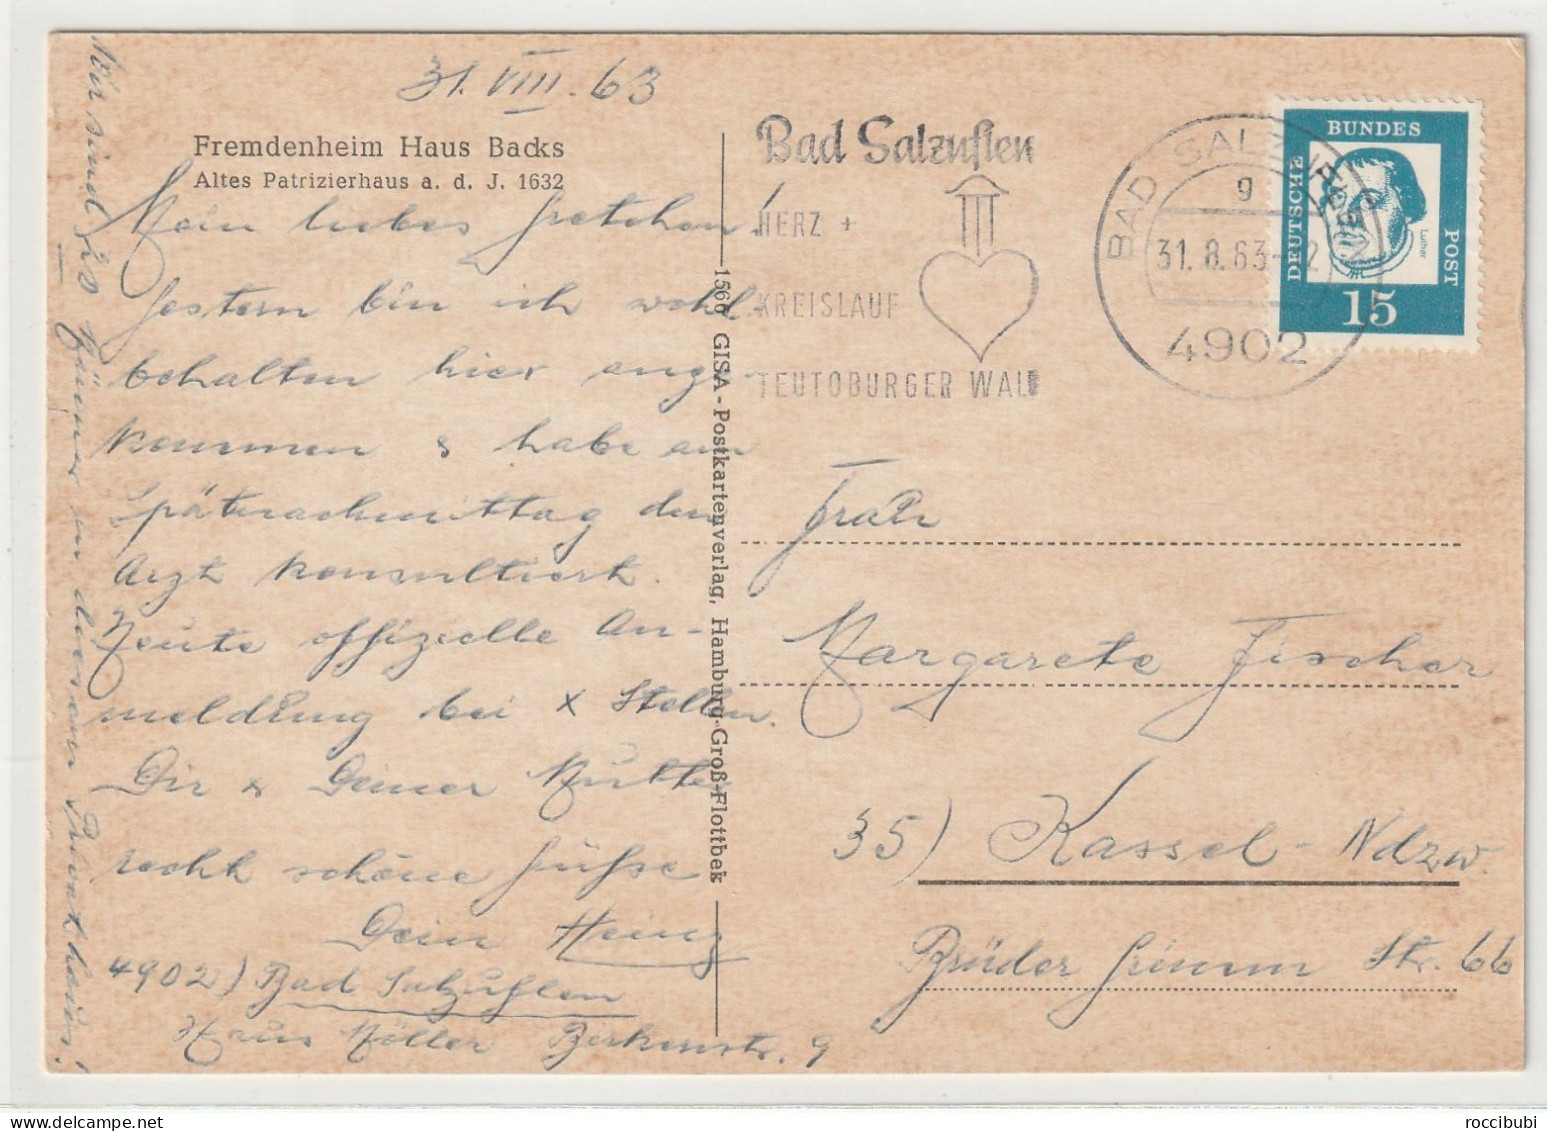 31. VIII. 63
Fremdenheim Haus Backs
Altes Patrizierhaus a. d. J. 1632
Mein liebes Gretchen!
Gestern bin ich wohl-
behalten hier ange-
kommen & habe am
Spätnachmittag den
Arzt konsultiert.
Heute offizielle An-
meldung bei x Stellen.
Dir & Deiner Mutter
recht schöne Grüße
Dein Heinz
4902) Bad Salzuflen
Haus Möller Birkenstr. 9
Wir sind 20 Männer in diesem Privatheim!
1560 GISA-Postkartenverlag, Hamburg-Groß-Flottbek
Bad Salzuflen
HERZ +
KREISLAUF
TEUTOBURGER WALD
BAD SALZUFLEN
g
31.8.63-12
4902
DEUTSCHE
BUNDES
POST
Luther
15
Frau
Margarete Fischer
35) Kassel-Ndzw.
Brüder Grimm Str. 66
roccibubi